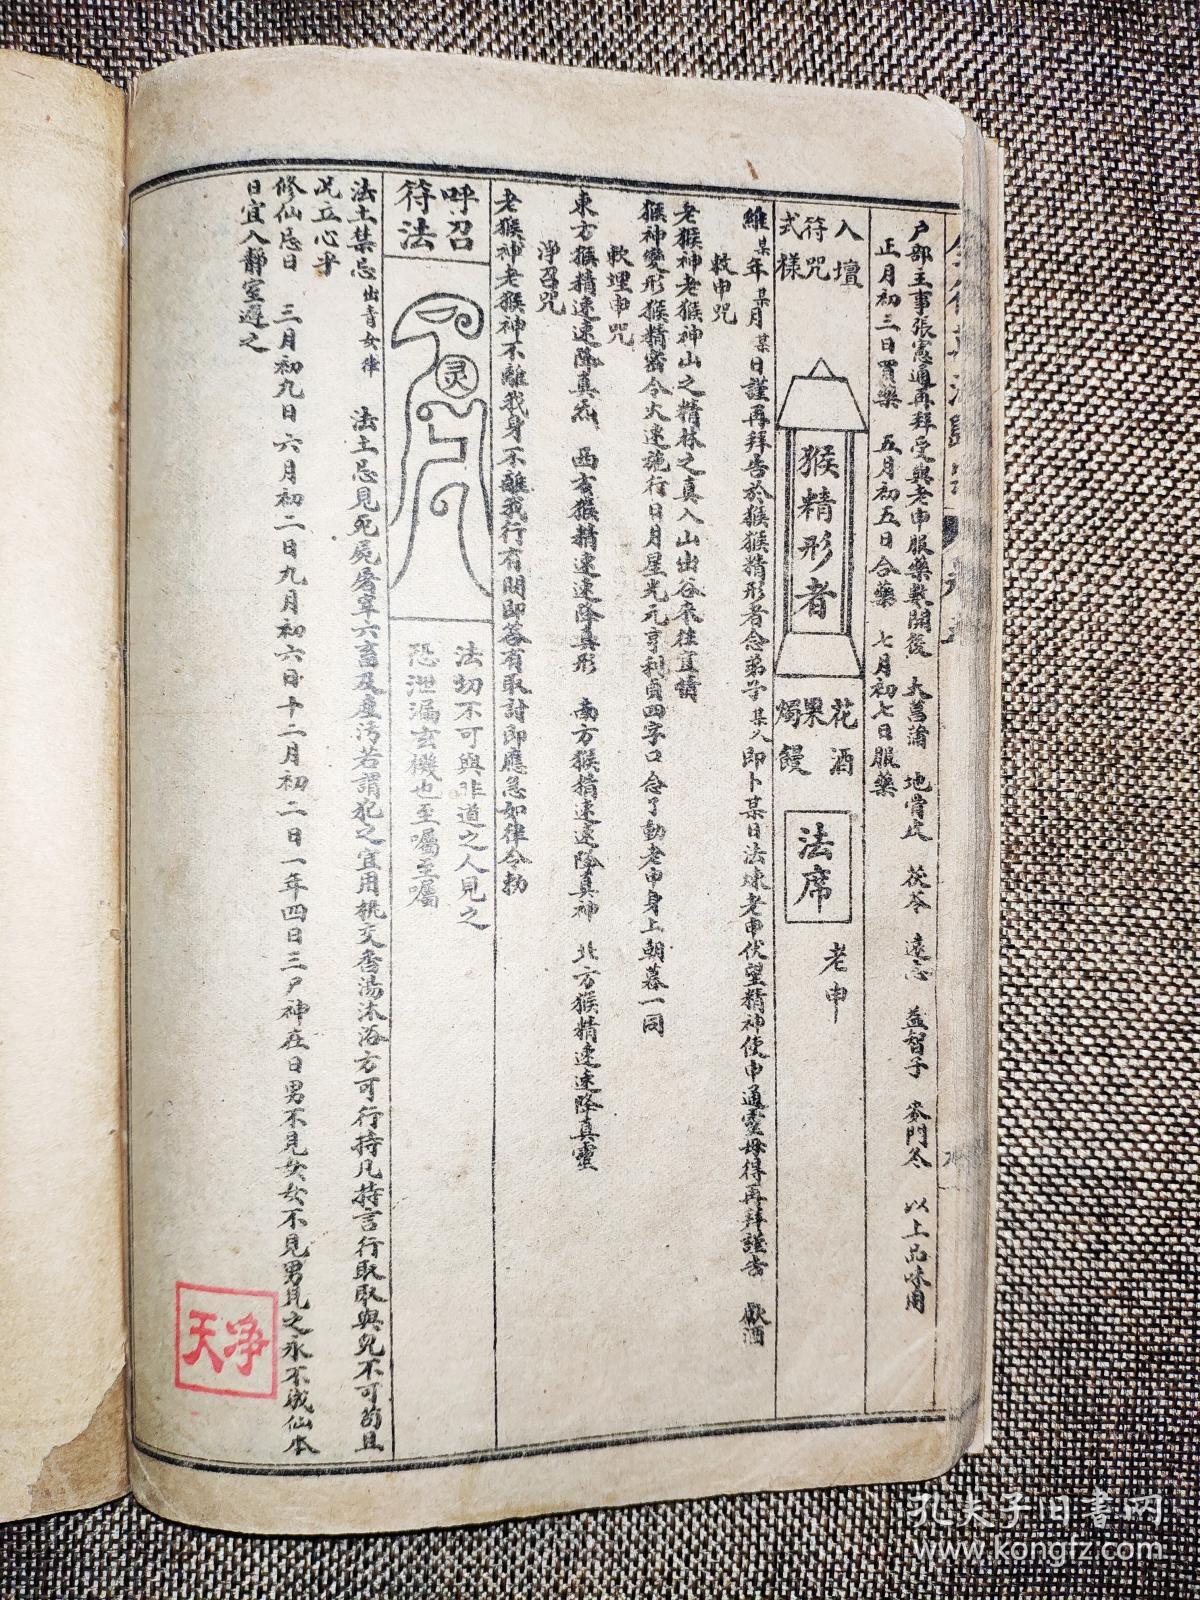 户部主事張憲通再拜受與老申服藥數開後　大菖蒲　地骨皮　茯苓　遠志　益智子　麥門冬　以上品味用
正月初三日買藥　五月初五日合藥　七月初七日服藥
入壇
符咒
式樣
猴精形者
花酒
果
燭饅
法席
老申
維某年某月某日謹再拜告於猴猴精形者念弟子某人即卜某日法煉老申伏望精神使申通靈毋得再拜謹告　獻酒
敕申咒
老猴神老猴神山之精林之真入山出谷來往宜情
猴神變形猴精密令火速施行日月星光元亨利貞四字口念了動老申身上朝暮一同
軟埋申咒
東方猴精速速降真炁　西方猴精速速降真形　南方猴精速速降真神　北方猴精速速降真靈
淨召咒
老猴神老猴神不離我身不離我行有問即答有取討即應急如律令勑
呼召
符法
灵
法切不可與非道之人見之
恐泄漏玄機也至囑至囑
法士禁忌出青女律　法士忌見死屍屠宰六畜及產污若謂犯之宜用桃交香湯沐浴方可行持凡持言行取取與兒不可苟且
凡立心乎
修仙忌日　三月初九日六月初二日九月初六日十二月初二日一年四日三尸神在日男不見女女不見男見之永不成仙本
日宜入靜室避之
净天
孔夫子旧书网
www.kongfz.com